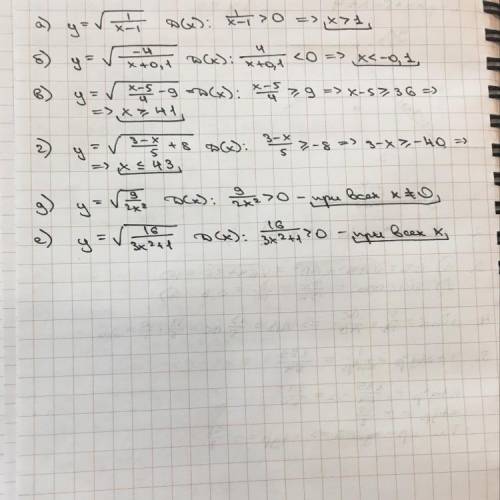 а) y = √(1/(x-1)) D(x): 1/(x-1) > 0 => x > 1
б) y = √(-4/(x+0,1)) D(x): 4/(x+0,1) < 0 => x < -0,1
в) y = √((x-5)/4 - 9) - D(x): (x-5)/4 ≥ 9 => x-5 ≥ 36 =>
=> x ≥ 41
г) y = √((3-x)/5 + 8) D(x): (3-x)/5 ≥ -8 => 3-x ≥ -40 =>
=> x ≤ 43
д) y = √(9/(2x²)) D(x): 9/(2x²) > 0 - при всех x ≠ 0
е) y = √(16/(3x²+1)) D(x): 16/(3x²+1) ≥ 0 - при всех x